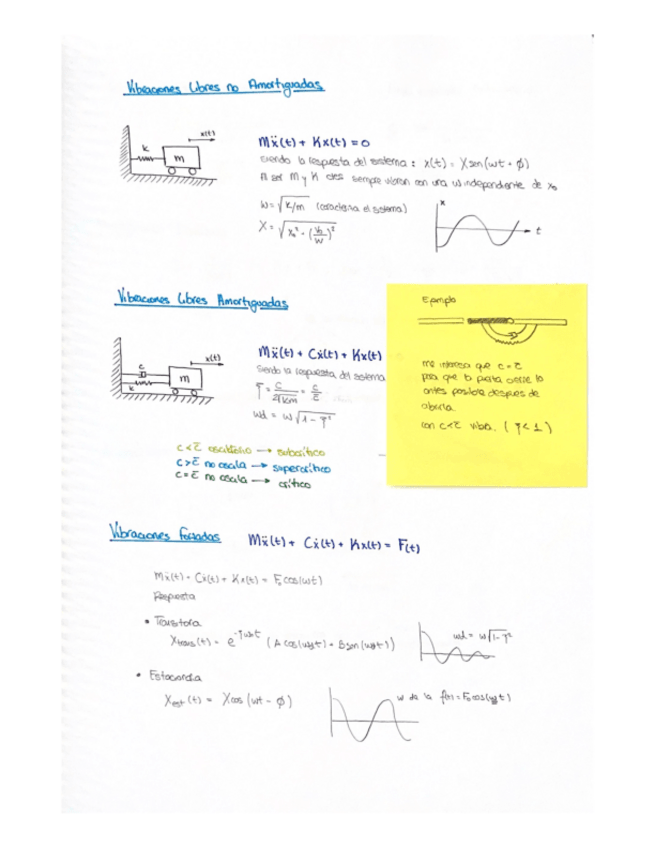 Vibraciones Libres no Amortiguadas
x(t)
k
m
Mẍ(t) + Kx(t) = 0
Siendo la respuesta del sistema : x(t) = X sen(wt + φ)
Al ser M y K ctes siempre vibran con una w independiente de x₀
W = √K/m (caracteriza el sistema)
X = √x₀² + (v₀/w)²
x
t
Vibraciones Libres Amortiguadas
x(t)
c
k
m
Mẍ(t) + Cẋ(t) + Kx(t)
Siendo la respuesta del sistema
ζ = c/2√km = c/c̄
wd = w√1 - ζ²
c < c̄ oscilatorio → subcrítico
c > c̄ no oscila → supercrítico
c = c̄ no oscila → crítico
Ejemplo
me interesa que c = c̄
para que la puerta cierre lo
antes posible despues de
abrirla.
con c < c̄ vibra. ( ζ < 1 )
Vibraciones Forzadas Mẍ(t) + Cẋ(t) + Kx(t) = F(t)
Mẍ(t) + Cẋ(t) + Kx(t) = F₀ cos(wt)
Respuesta
• Transitoria
Xtrans(t) = e^-ζwt (A cos(wdt) + B sen(wdt))
wd = w√1-ζ²
• Estacionaria
Xest(t) = X cos (wt - φ)
w de la f(t) = F₀ cos(wft)